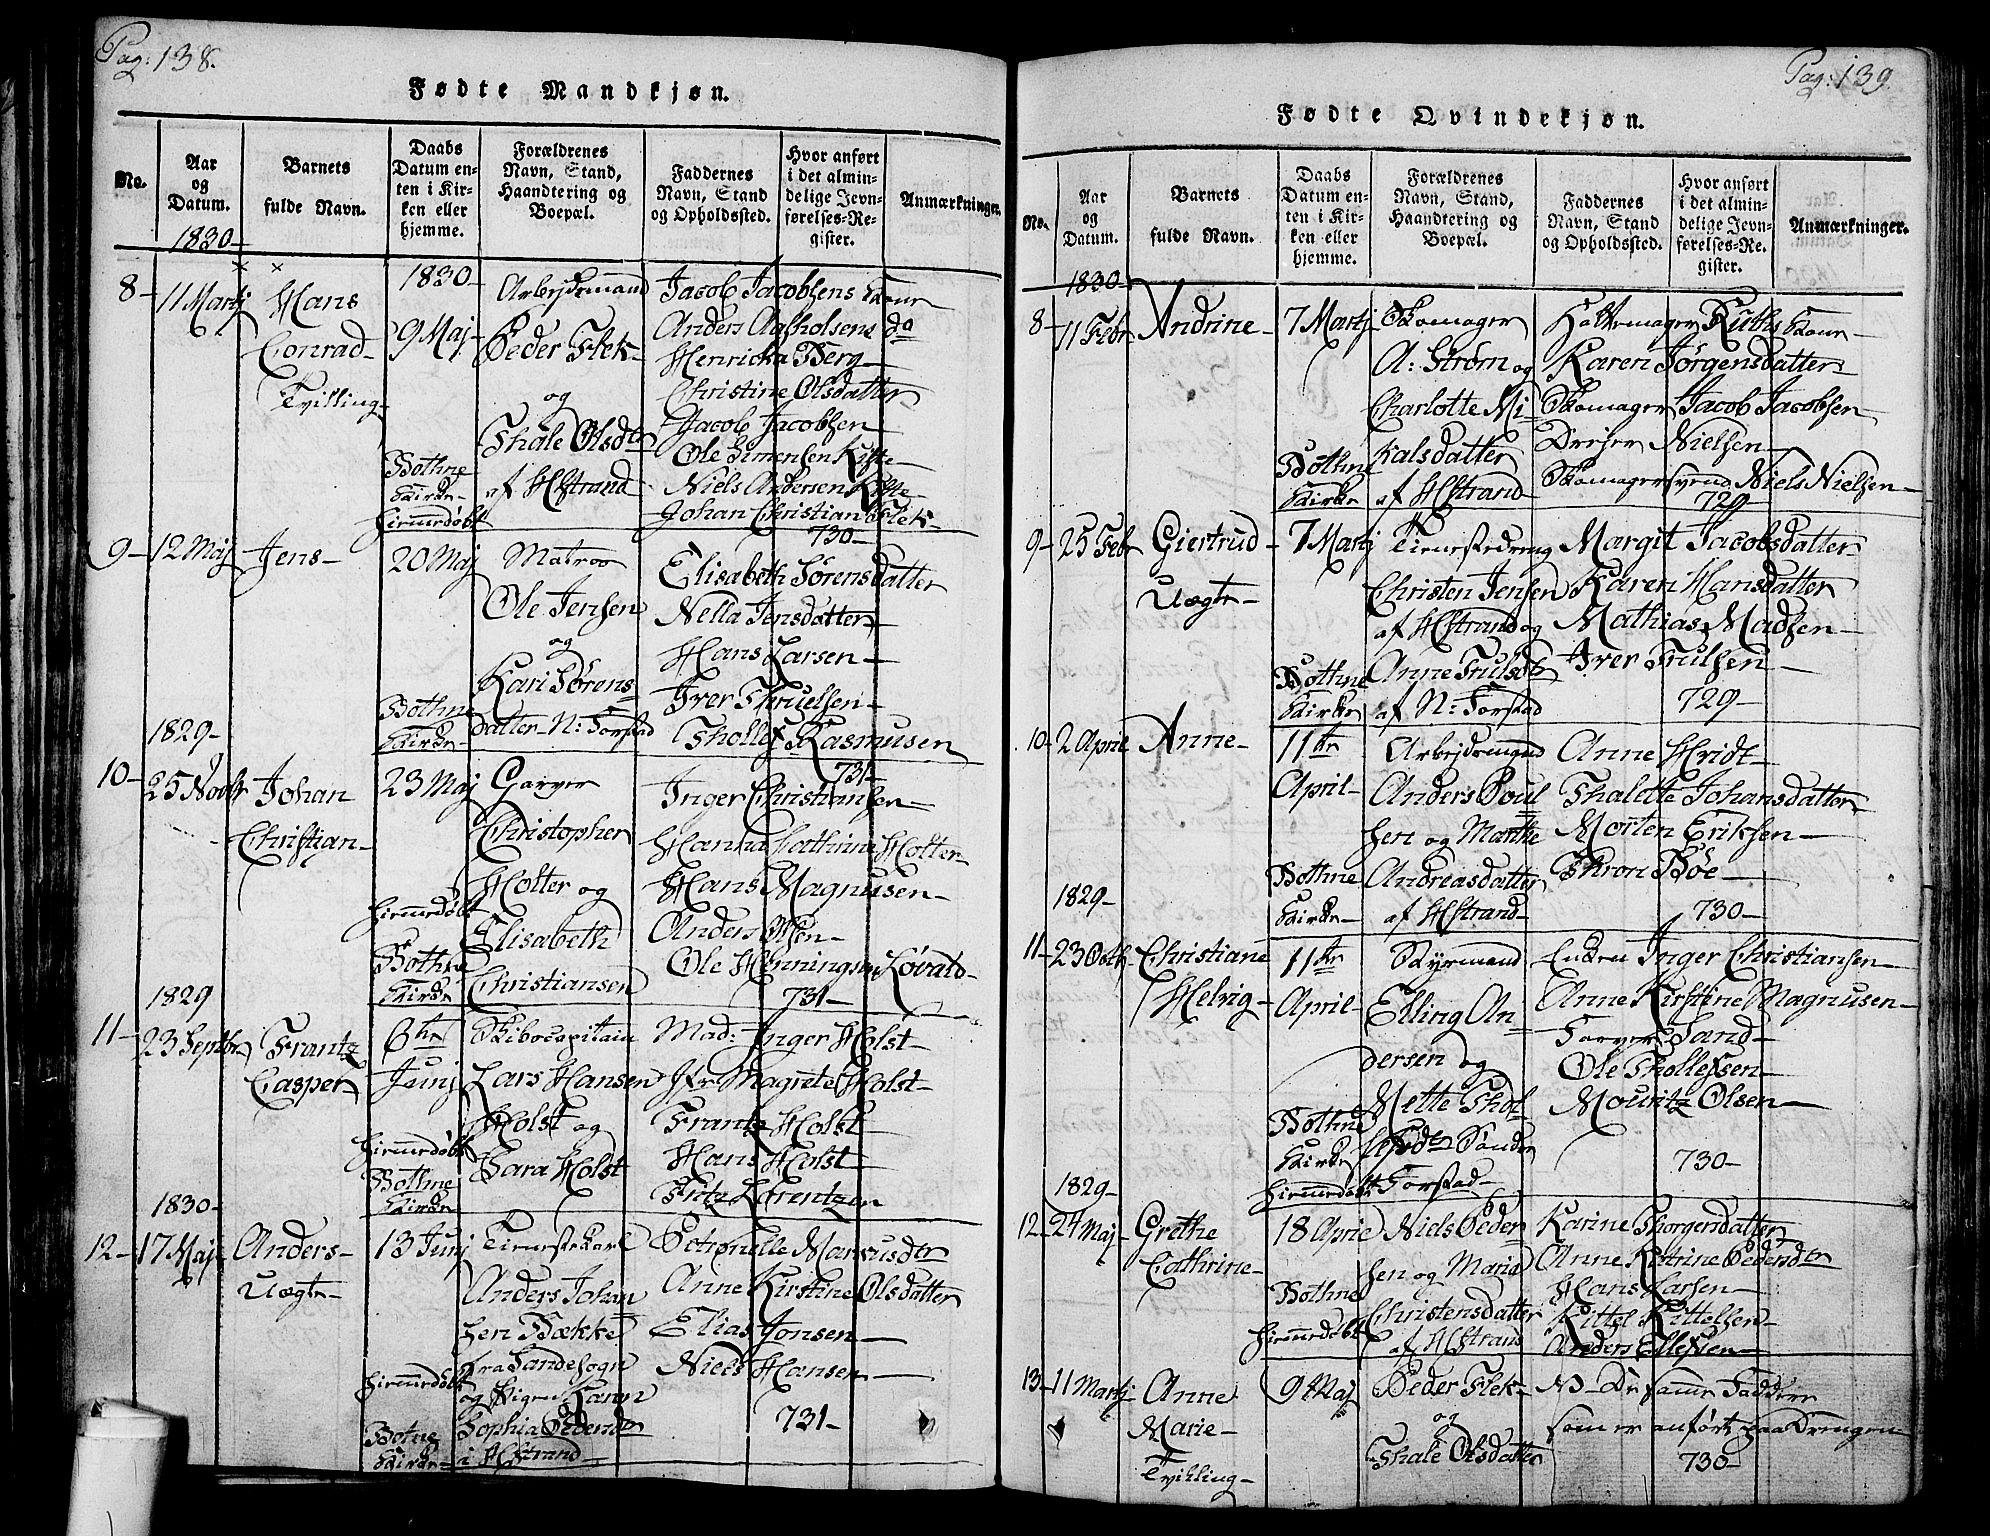 Pag: 138.
Fødte Mandkjøn.
No.
Aar
og
Datum.
Barnets
fulde Navn.
Daabs
Datum en-
ten i Kir-
ken eller
hjemme.
Forældrenes
Navn, Stand,
Haandtering og
Boepæl.
Faddernes
Navn, Stand
og Opholdssted.
Hvor anført
i det almin-
delige Jevn-
førelses-Re-
gister.
Anmærkninger.
1830-
8-
11 Martj
Hans
Conrad-
Tvilling-
1830-
9 Maj-
Bothne
Kirke-
hjemmedøbt
Arbejdsmand
Peder Flek-
og
Thale Olsdtr
af HStrand
Jacob Jacobsens Kone
Anders Aafholsens do
Henricka Berg-
Christine Olsdatter
Jacob Jacobsen-
Ole Simensen Kifte-
Niels Andersen Kifte
Johan Christian Flek-
730-
9-
12 Maj
Jens-
20 Maj
Bothne
Kirke-
Matros
Ole Jensen
og
Kari Sørens
datter N: Forstad
Elisabeth Sørensdatter
Nella Jensdatter
Hans Larsen-
Iver Thruelsen-
Thollef Rasmusen
731-
1829-
10-
25 Novbr
Johan
Christian-
23 Maj
hjemmedøbt
Bothne
Kirke
Garver
Christopher
Holter og
Elisabeth
Christiansen
Inger Christiansen-
Hanna Cathrine Holter
Hans Magnusen-
Anders Olsen-
Ole Henningsen Løvald-
731-
1829
11-
23 Septbr
Frantz
Casper-
6te
Junj
hjemmedøbt
Bothne
Kirke
Skibscapitain
Lars Hansen
Holst og
Sara Holst
Mad: Inger Holst-
Jfr Magrete Holst-
Frantz Holst
Hans Holst-
Fritz Lorentzen
1830-
12-
17 Maj-
Anders-
Uægte-
13 Junj
hjemmedøbt
Botne
Kirke-
Tienestekarl
Anders Johan
sen Bække
fra Sandesogn
og Pigen Karen
Sophia Pedersdtr
i HStrand-
Petronelle Marcusdtr
Anne Kirstine Olsdatter
Elias Jonsen-
Niels Hansen-
731-
Pag: 139.
Fødte Qvindekjøn.
No.
Aar
og
Datum.
Barnets
fulde Navn.
Daabs
Datum en-
ten i Kir-
ken eller
hjemme.
Forældrenes
Navn, Stand,
Haandtering og
Boepæl.
Faddernes
Navn, Stand
og Opholdssted.
Hvor anført
i det almin-
delige Jevn-
førelses-Re-
gister.
Anmærkninger.
1830-
8-
11 Febr
Andrine-
7 Martj
Bothne
Kirke
Skomager
A: Strøm og
Charlotte Mi-
kalsdatter
af HStrand
Hattemager Kone
Karen Jørgensdatter
Skomager Jacob Jacobsen
Drejer Nielsen-
Skomagersvend Niels Nielsen-
729-
9-
25 Febr
Giertrud-
Uægte-
7 Martj
Bothne
Kirke
Tienestedreng
Christen Jensen
af HStrand og
Anne Trulsdtr
af N: Forstad
Margit Jacobsdatter
Karen Hansdatter
Mathias Madsen-
Iver Trulsen-
729-
10-
2 April
Anne-
11te
April-
Bothne
Kirke-
Arbejdsmand
Anders Poul
sen og Marthe
Andreasdatter
af HStrand-
Anne Hvidt-
Thalette Johansdatter
Morten Eriksen-
Thron Bøe-
730-
1829-
11-
23 Octb-
Christiane
Helvig-
11te
April-
Bothne
Kirke
hjemmedøbt
Styrmand
Elling An-
dersen og
Mette Thol
lefsdtr Søndre
Forstad-
Enken Inger Christiansen-
Anne Kirstine Magnusen-
Farver Sand-
Ole Thollefsen-
Mouritz Olsen-
730-
1829-
12-
24 Maj-
Grethe
Cathrine-
18 April
Bothne
hjemmedøbt
Niels Peder
sen og Maria
Christensdatter
af HStrand
Karine Thorgersdatter
Anne Katrine Pedersdtr
Hans Larsen-
Kittel Kittelsen-
Anders Ellefsen-
13-
11 Martj
Anne
Marie-
Tvilling-
9 Maj
Peder Flek-
og
Thale Olsdatter
NB- De samme Faddere
som er anført paa Drengen
730-